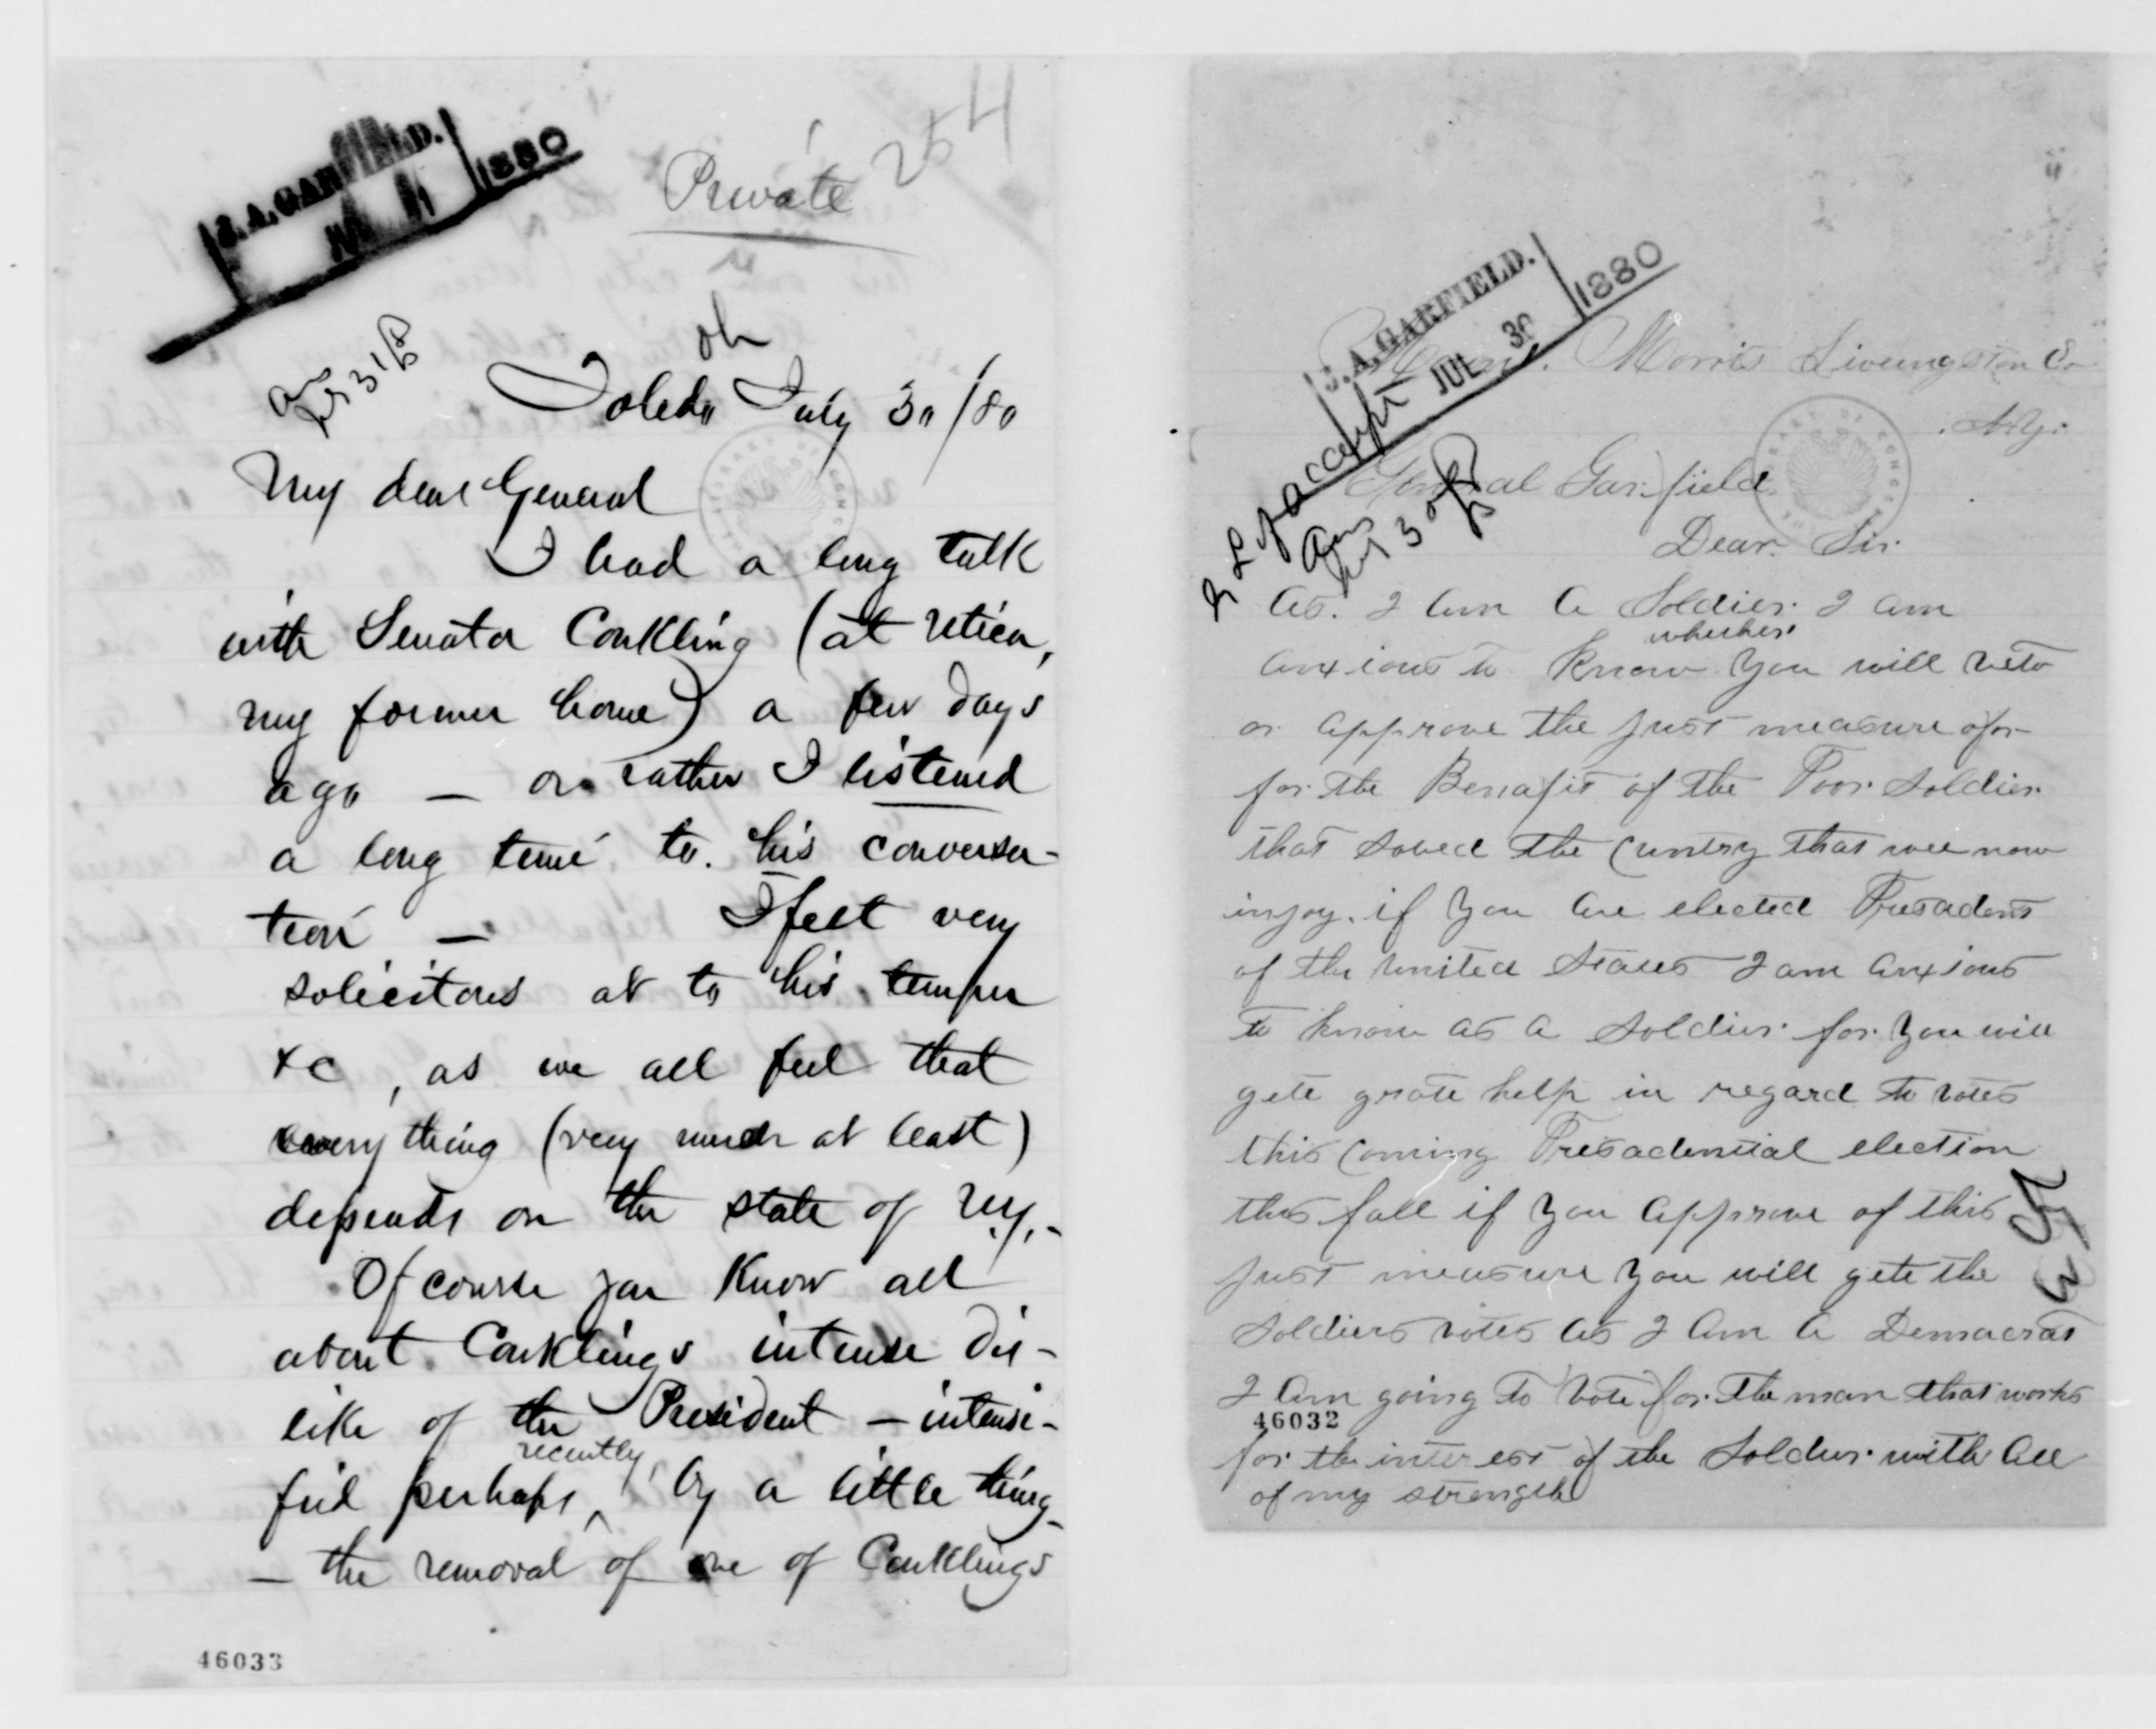 J. A. GARFIELD.
1880
Private
254
Ans
July 31
Oh
Toledo July 30/80
My dear General
I had a long talk
with Senator Conkling (at Utica,
my former home) a few days
ago — or rather I listened
a long time to his conversa-
tion — I felt very
solicitous at to his temper
&c, as we all feel that
everything (very much at least)
depends on the state of N.Y.-
Of course you know all
about Conklings intense dis-
like of the President — intensi-
fied perhaps recently, by a little thing
— the removal of one of Conklings
46033
J. A. GARFIELD.
JUL 30
1880
Mount. Morris Liveingston Co
N.y.
L of accept
Ans
July 30
General Garfield
Dear. Sir.
As. I am A Soldier. I am
anxious to Know whether you will veto
or approve the just measure
for the Benafit of the Poor Soldier
that saved the Cuntry that wee now
injoy. if you are elected Presadent
of the united States I am anxious
to know as a Soldier for you will
gete grate help in regard to votes
this Coming Presadential election
this fall if you approve of this
just measure you will gete the
Soldiers votes as I am A Demacrat
I am going to vote for the man that works
46032
for the interest of the Soldier with all
of my strength
253